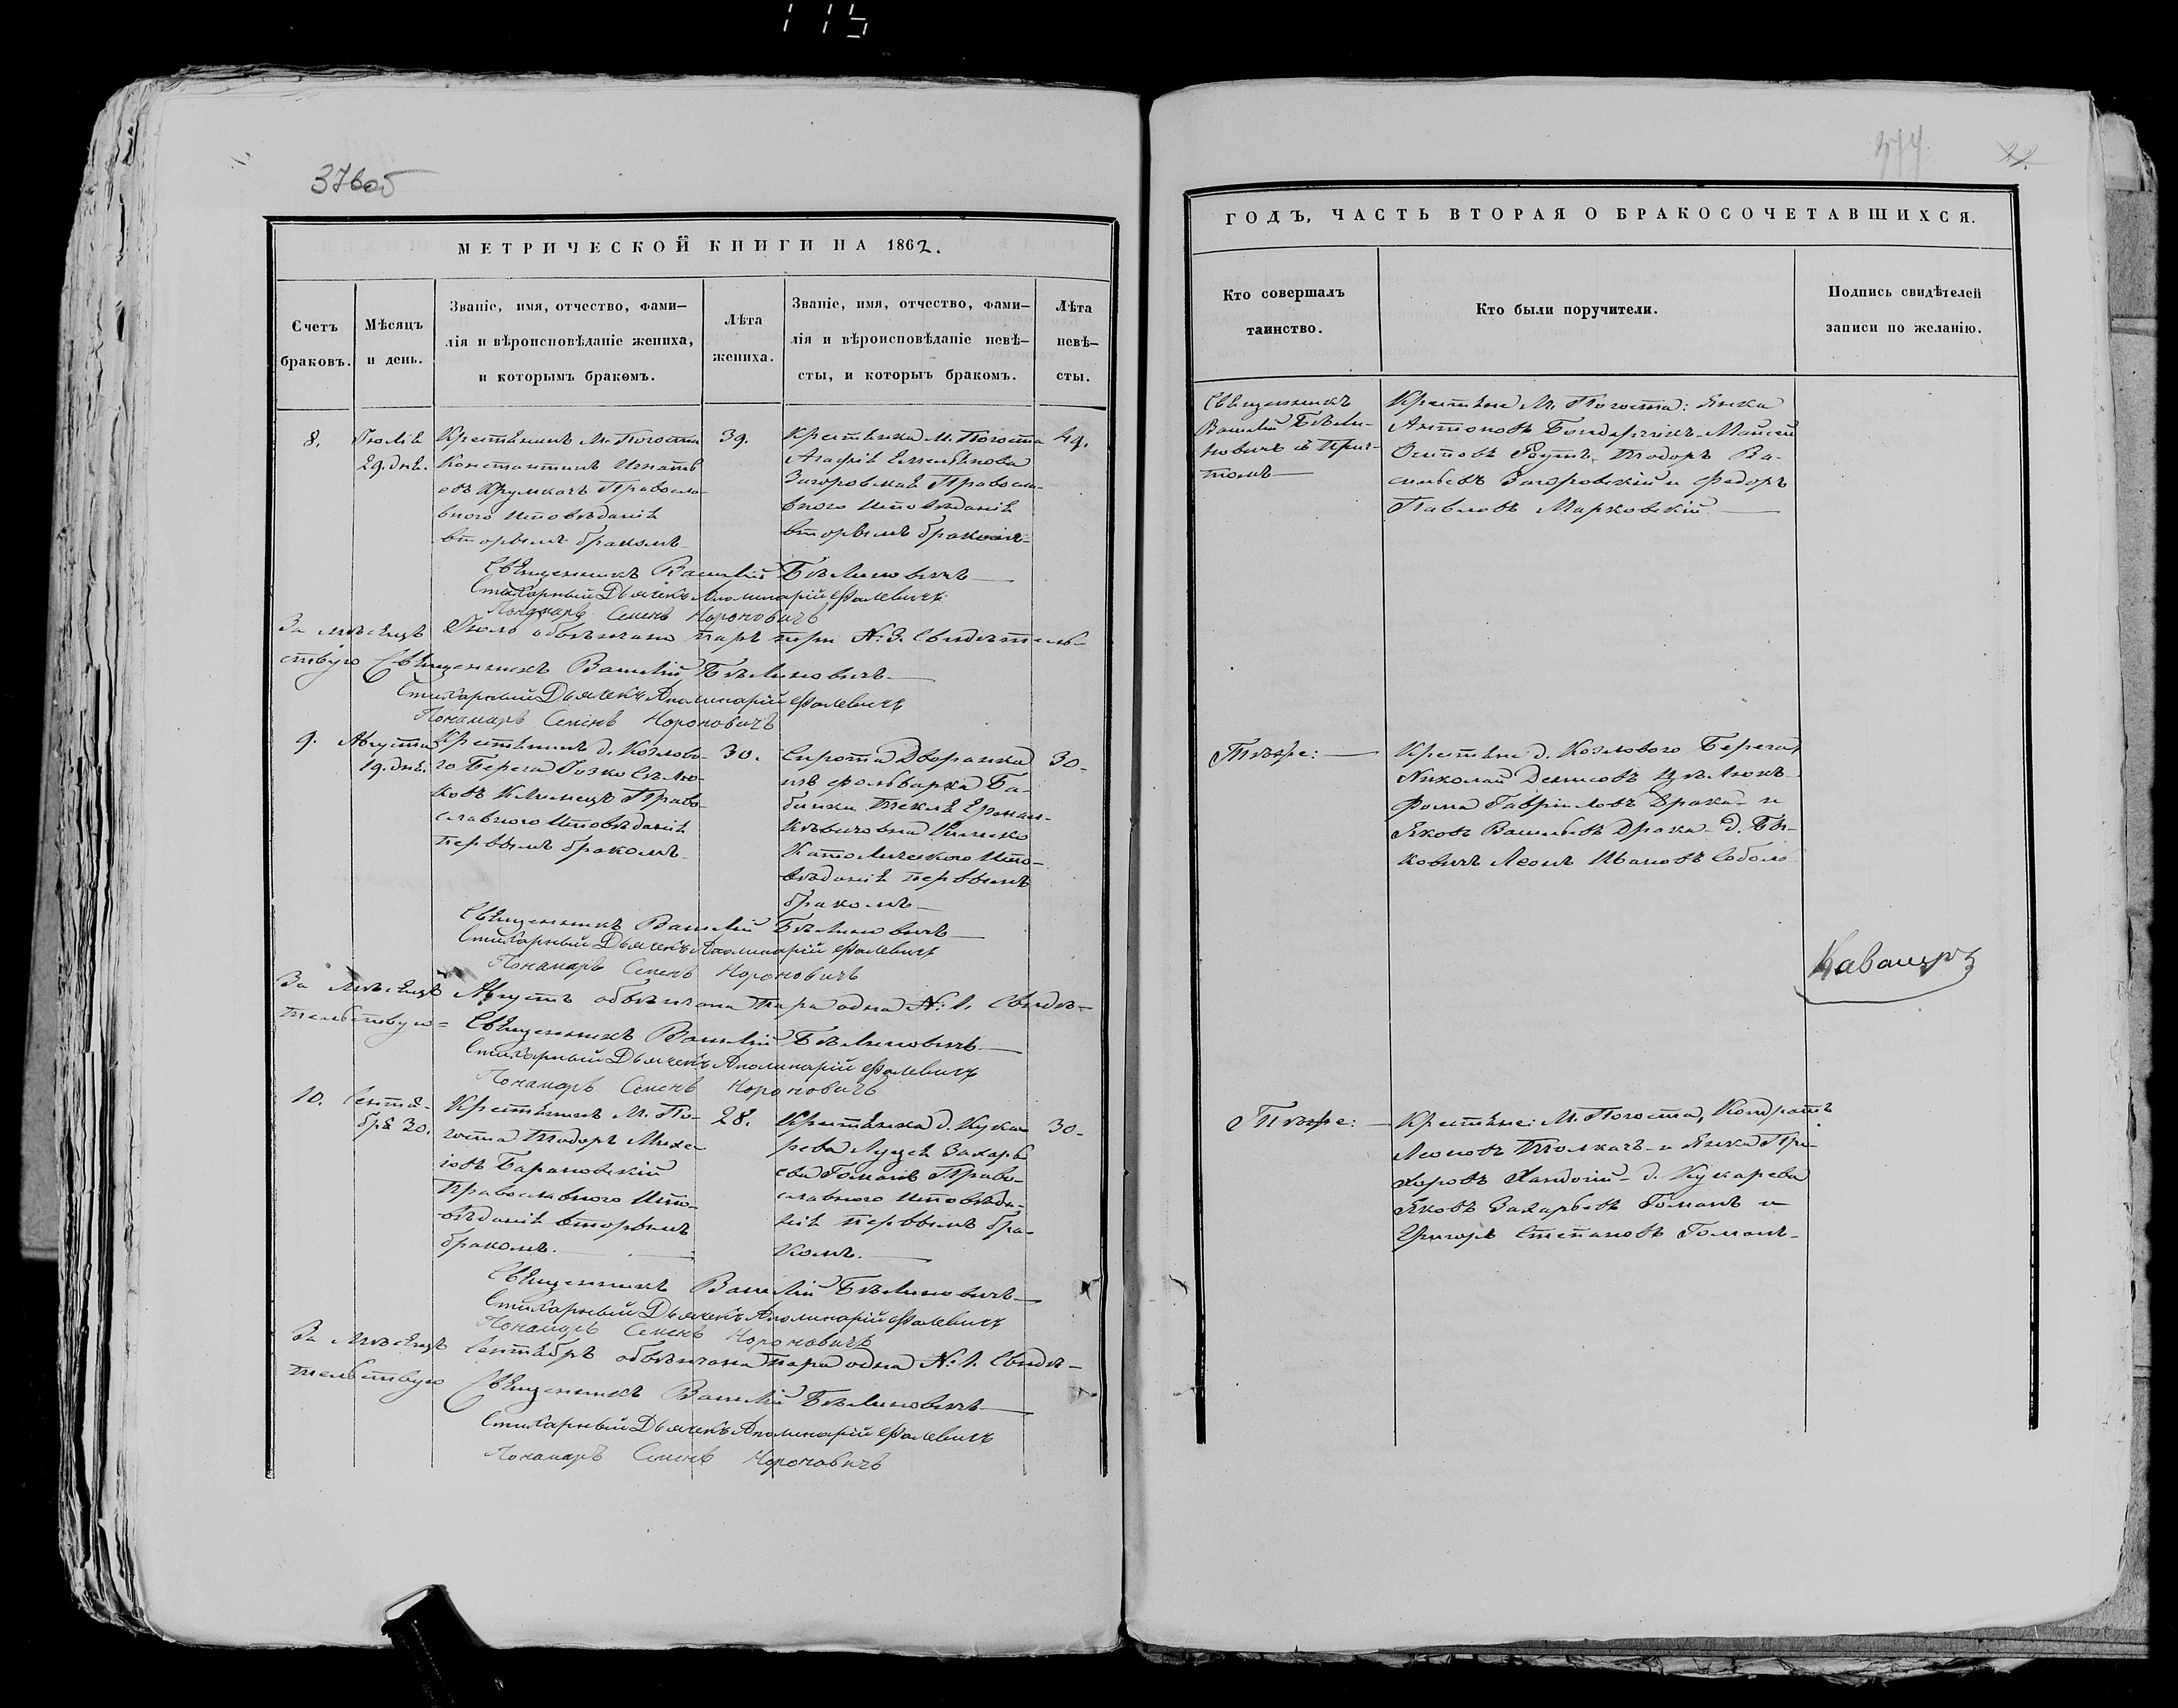 115
376об
377
22.
МЕТРИЧЕСКОЙ КНИГИ НА 1862.
Счетъ браковъ.
Мѣсяцъ и день.
Званіе, имя, отчество, фами-
лія и вѣроисповѣданіе жениха,
и которымъ бракомъ.
Лѣта жениха.
Званіе, имя, отчество, фами-
лія и вѣроисповѣданіе невѣ-
сты, и которыѣ бракомъ.
Лѣта невѣ-
сты.
8.
Іюлія
29. дня.
Крестьянинъ М. Погоста
Константинъ Игнать
евъ Крумкачъ Правосла-
внаго Исповѣданія
вторымъ бракомъ
39.
Крестьянка М. Погоста
Агафія Емельянова
Загоровская Правосла-
внаго Исповѣданія
вторымъ бракомъ
49.
Священникъ Василій Бѣлиновичъ
Стихарный Дьячекъ Аполинарій Фалевичъ
Пономарь Семенъ Нороновичъ
За мѣсяцъ Іюль обвѣнчано паръ три №: 3. Свидѣтель-
ствую Священникъ Василій Бѣлиновичъ
Стихарный Дьячекъ Аполинарій Фалевичъ
Пономарь Семенъ Нороновичъ
9.
Августа
19. дня.
Крестьянинъ д. Козлова-
го Берега
Климецъ Право-
славного Исповѣданія
первымъ бракомъ
30.
Сирота Дворянка
изъ фольварка Ба-
бинки Текля
Римско
Католическаго Испо-
вѣданія первымъ
бракомъ
30
Священникъ Василій Бѣлиновичъ
Стихарный Дьячекъ Аполинарій Фалевичъ
Пономарь Семенъ Нороновичъ
За мѣсяцъ Августъ обвѣнчана пара одна №: 1. Свидѣ-
тельствую Священникъ Василій Бѣлиновичъ
Стихарный Дьячекъ Аполинарій Фалевичъ
Пономарь Семенъ Нороновичъ
10.
Сентя-
бря 30.
Крестьянинъ М. По-
госта Тодоръ Михе
іовъ Барановскій
Православнаго Испо-
вѣданія вторымъ
бракомъ.
28.
Крестьянка д. Кукаа
рева Луція Захарь
ева Гоманъ Право-
славнаго Исповѣда-
нія первымъ бра-
комъ.
30
Священникъ Василій Бѣлиновичъ
Стихарный Дьячекъ Аполинарій Фалевичъ
Пономарь Семенъ Нороновичъ
За мѣсяцъ Сентябрь обвѣнчана пара одна №: 1. Свидѣ-
тельствую Священникъ Василій Бѣлиновичъ
Стихарный Дьячекъ Аполинарій Фалевичъ
Пономарь Семенъ Нороновичъ
ГОДЪ, ЧАСТЬ ВТОРАЯ О БРАКОСОЧЕТАВШИХСЯ.
Кто совершалъ
таинство.
Кто были поручители.
Подпись свидѣтелей
записи по желанію.
Священникъ
Василій Бѣли-
новичъ съ Прич-
томъ
Крестьяне М. Погоста: Янка
Антоновъ Бондарчикъ Майсей
Осиповъ Тодоръ Ва-
сильевъ Загоровскій и Федоръ
Павловъ Марковскій
Тѣже:
Крестьяне д. Козлового Берега,
Николай Денисовъ
Фома Гавриловъ Драка и
Яковъ Васильевъ Драка д. Бы-
ковичъ Леонъ Ивановъ Соболь
Тѣже:
Крестьяне: М. Погоста, Кондратъ
Леоновъ Толкачъ и Янка Про
хоровъ д. Кукарева
Яковъ Захарьевъ Гоманъ и
Григорь Степановъ Гоманъ